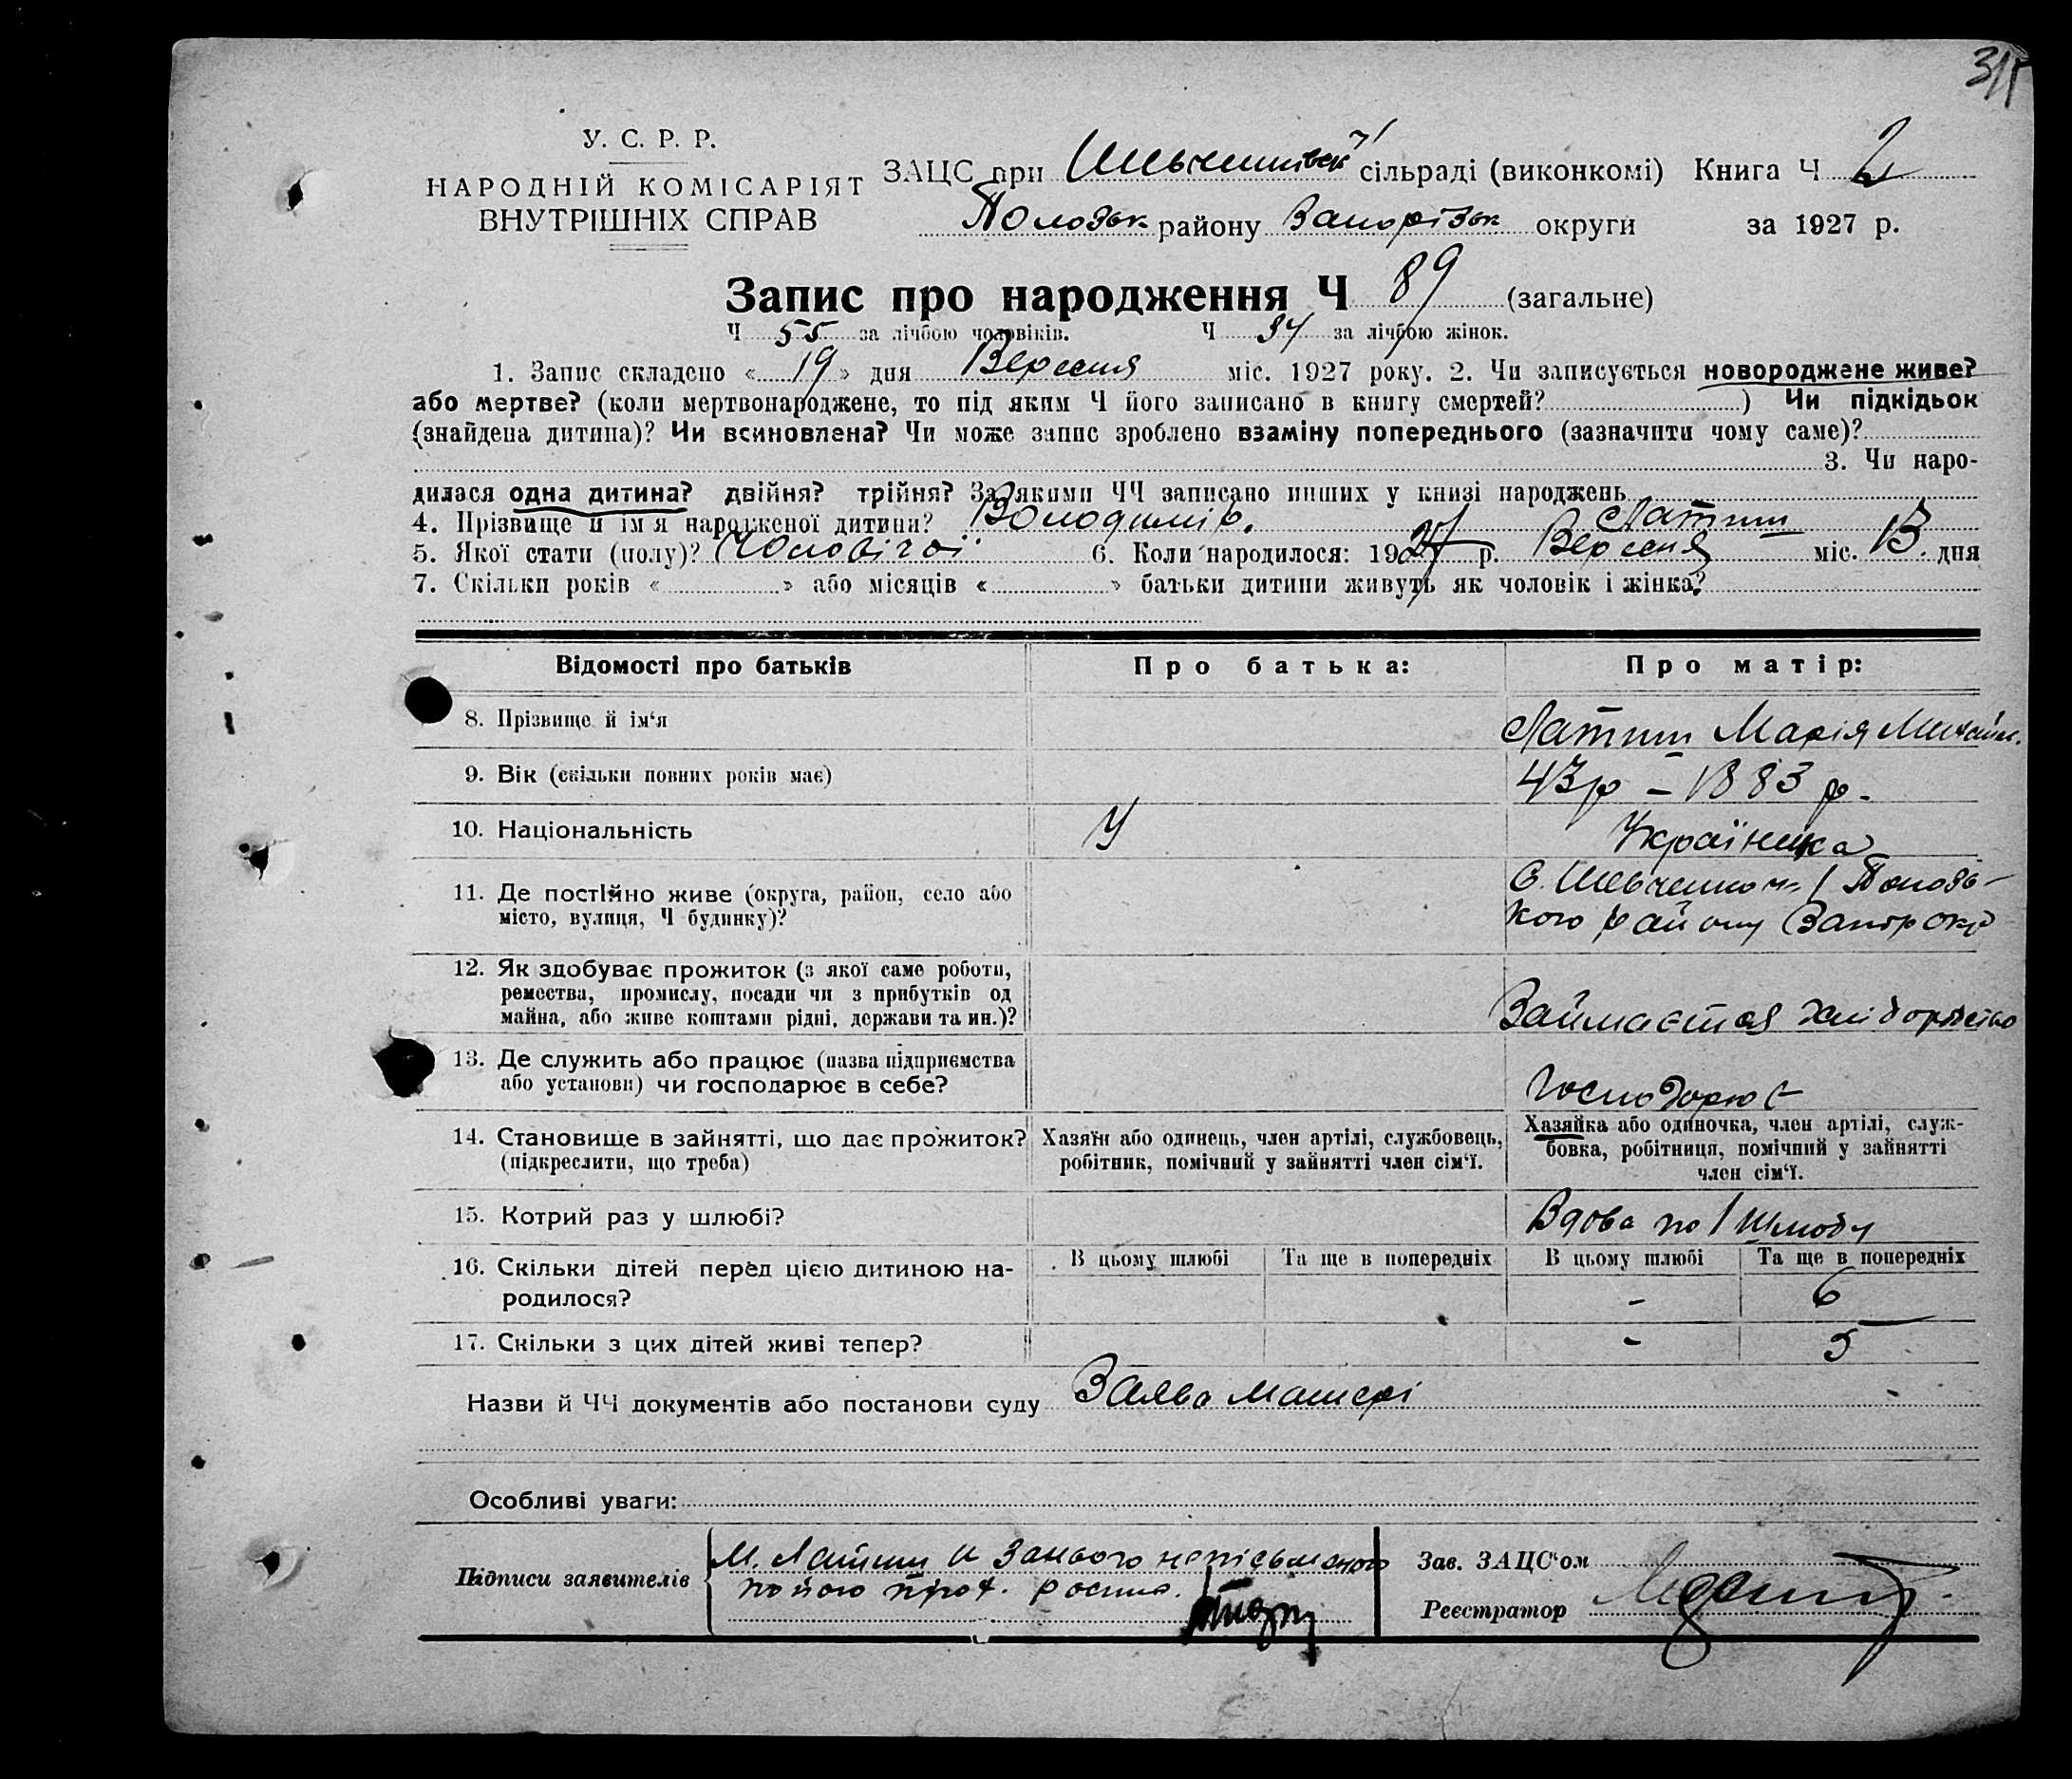 У. С. Р. Р.
НАРОДНІЙ КОМІСАРІЯТ
ВНУТРІШНІХ СПРАВ
ЗАЦС при Шевченківськ сільраді (виконкомі) Книга Ч 2
Пологівськ району Запорізьк округи за 1927 р.
Запис про народження Ч 89 (загальне)
Ч 55 за лічбою чоловіків. Ч 34 за лічбою жінок.
1. Запис складено « 19 » дня Вересня міс. 1927 року. 2. Чи записується новороджене живе?
або мертве? (коли мертвонароджене, то під яким Ч його записано в книгу смертей? ) Чи підкідьок
(знайдена дитина)? Чи всиновлена? Чи може запис зроблено взаміну попереднього (зазначити чому саме)?
3. Чи наро-
дилася одна дитина? двійня? трійня? За якими ЧЧ записано инших у книзі народжень
4. Прізвище й ім'я народженої дитини? Володимір. Латиш
5. Якої стати (полу)? Чоловічої 6. Коли народилося: 1927 р. Вересня міс. 13. дня
7. Скільки років « » або місяців « » батьки дитини живуть як чоловік і жінка?
Відомості про батьків Про батька: Про матір:
8. Прізвище й ім‘я Латиш Марія Михайл.
9. Вік (скільки повних років має) 43р – 1883 р.
10. Національність У Українка
11. Де постійно живе (округа, район, село або С. Шевченкон-1
місто, вулиця, Ч будинку)? кого району Запорокр
12. Як здобуває прожиток (з якої саме роботи,
ремества, промислу, посади чи з прибутків од
майна, або живе коштами рідні, держави та ин.)? Займається хліборобство
13. Де служить або працює (назва підприємства
або установи) чи господарює в себе? Господарює
14. Становище в зайнятті, що дає прожиток? Хазяїн або одинець, член артілі, службовець, Хазяйка або одиночка, член артілі, служ-
(підкреслити, що треба) робітник, помічний у зайнятті член сім‘ї. бовка, робітниця, помічний у зайнятті
член сім‘ї.
15. Котрий раз у шлюбі? Вдова по 1 шлюбу
16. Скільки дітей перед цією дитиною на- В цьому шлюбі Та ще в попередніх В цьому шлюбі Та ще в попередніх
родилося? - 6
17. Скільки з цих дітей живі тепер? - 5
Назви й ЧЧ документів або постанови суду Заява матері
Особливі уваги:
Підписи заявителів М. Латиш и занього неписьменого Зав. ЗАЦС‘ом
по його прох. роспис. Реєстратор